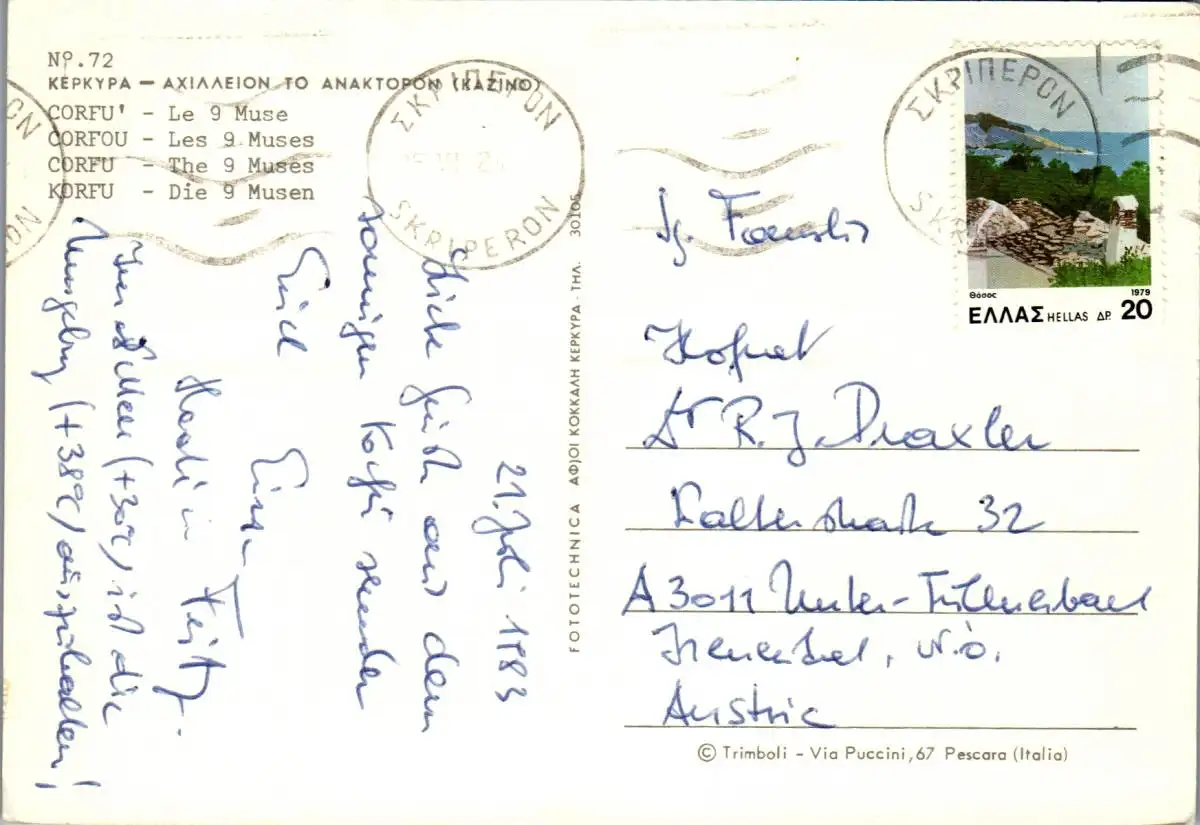 Nº.72
ΚΕΡΚΥΡΑ — ΑΧΙΛΛΕΙΟΝ ΤΟ ΑΝΑΚΤΟΡΟΝ (ΚΑΖΙΝΟ)
CORFU' - Le 9 Muse
CORFOU - Les 9 Muses
CORFU - The 9 Muses
KORFU - Die 9 Musen
ΣΚΡΙΠΕΡΟΝ
SKRIPERON
ΣΚΡΙΠΕΡΟΝ
Θάσος 1979
ΕΛΛΑΣ HELLAS ΔΡ. 20
21. Juli 1983
Liebe Grüße aus dem
sonnigen Korfu senden
Euch
Eure
Im Meer (+30°C) ist die
Umgebung (+38°C) auszuhalten!
FOTOTECHNICA ΑΦ)ΟΙ ΚΟΚΚΑΛΗ ΚΕΡΚΥΡΑ - ΤΗΛ. 30105
Fg. Familie
Hofrat
Dr R. J. Draxler
32
A 3011 Unter-Tullnerbach
Irenental, N.Ö.
Austria
© Trimboli - Via Puccini, 67 Pescara (Italia)